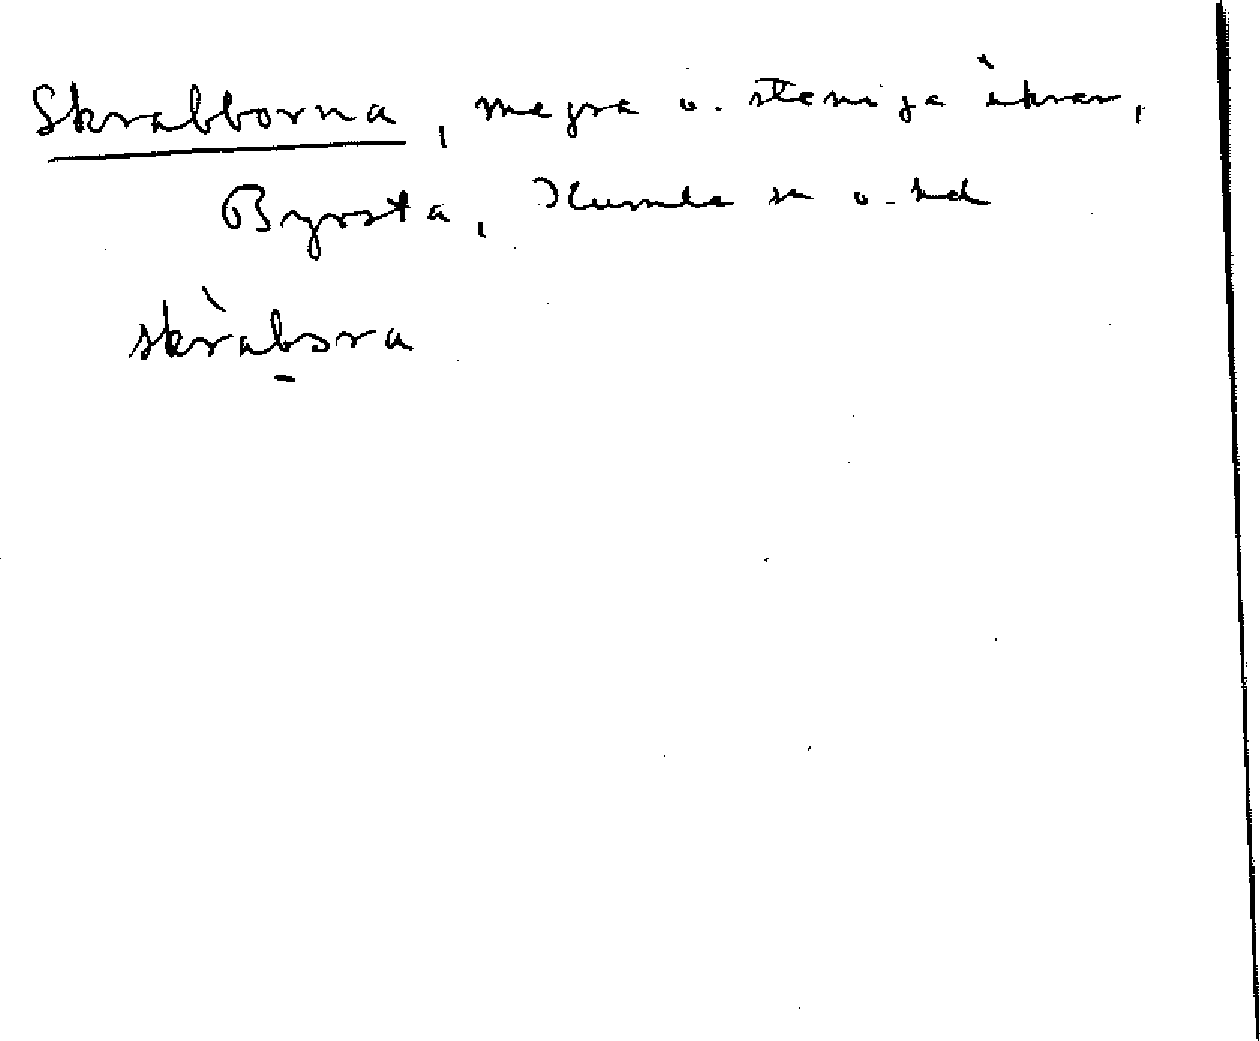 Skrabborna, magra o. steniga åkrar,
Byrsta, Kumla sn o. hd
skràbora